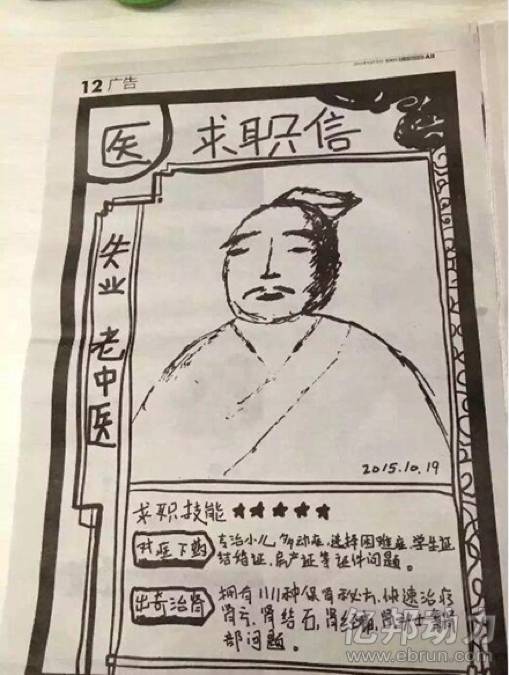 12 广告
医
求职信
失业老中医
2015.10.19
求职技能 ★★★★★
对症下药
专治小儿多动症,选择困难症,学生证
结婚证,房产证等证件问题。
出奇治肾
拥有1111种保肾秘方,快速治疗
肾亏,肾结石,
部问题。
亿邦动力
www.ebrun.com